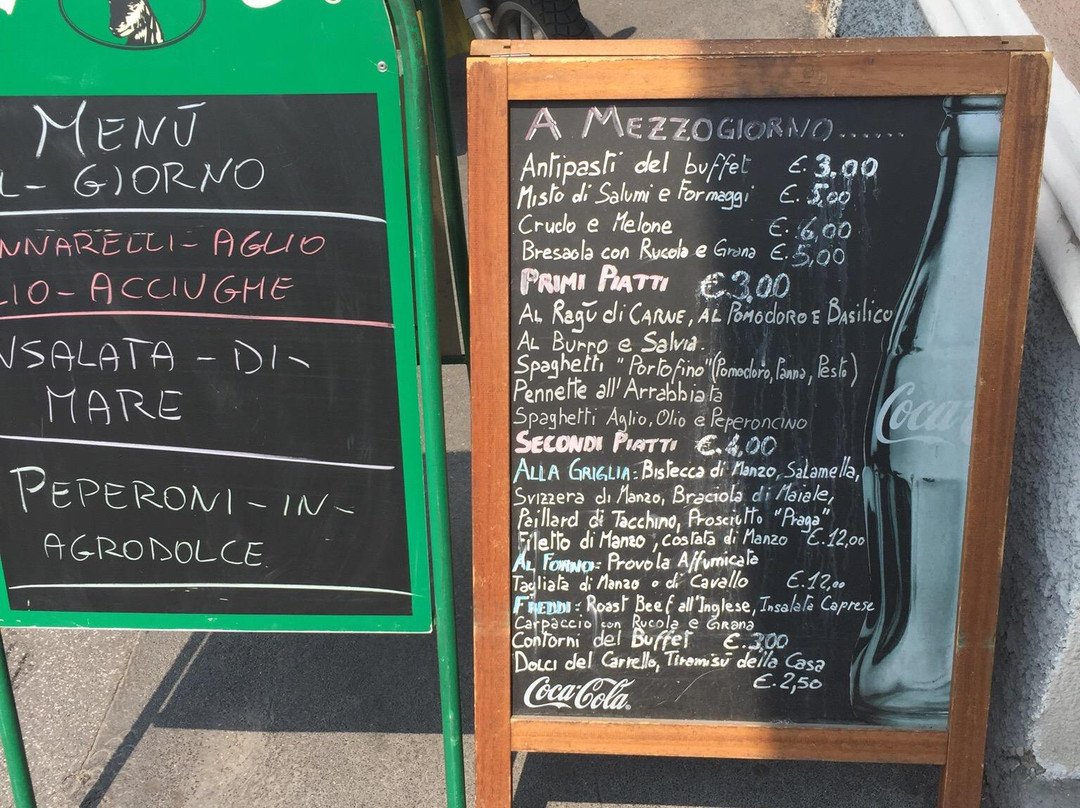 MENÙ
L- GIORNO
NNARELLI-AGLIO
LIO-ACCIUGHE
NSALATA-DI-
MARE
PEPERONI-IN-
AGRODOLCE
A MEZZOGIORNO......
Antipasti del buffet €. 3,00
Misto di Salumi e Formaggi €. 5,00
Crudo e Melone €. 6,00
Bresaola con Rucola e Grana €. 5,00
PRIMI PIATTI €3,00
AL RAGÙ di CARNE, AL POMODORO E BASILICO
AL BURRO e SALVIA.
Spaghetti "Portofino" (Pomodoro, Panna, Pesto)
Pennette all'Arrabbiata
Spaghetti Aglio, Olio e Peperoncino
SECONDI PIATTI €.4,00
ALLA GRIGLIA: Bistecca di Manzo, Salamella,
Svizzera di Manzo, Braciola di Maiale,
Paillard di Tacchino, Prosciutto "Praga"
Filetto di Manzo, costata di Manzo €.12,00
AL FORNO: Provola Affumicata
Tagliata di Manzo o di Cavallo €.12,00
FREDDI: Roast Beef all'Inglese, Insalata Caprese
Carpaccio con Rucola e Grana
Contorni del Buffet €.3,00
DOLCI del Carrello, Tiramisù della Casa
€.2,50
Coca-Cola
Coca